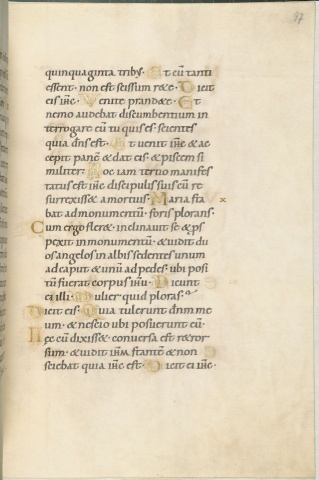 97
quinquaginta tribus. Et cū tanti
essent. non est scissum rete. Dicit
eis ihc. Venite prandete. Et
nemo audebat discumbentium in
terrogare eū tu quis es. scientes
quia dns est. Et uenit ihc & ac
cepit panē & dat eis. & piscem si
militer. Hoc iam tertio manifes
tatus est ihc discipulis suis cū re
surrexiss& a mortuis. Maria sta
bat ad monumentū. foris plorans.
Cum ergo fler&. inclinauit se & ps
pexit in monumentū. & uidit du
os angelos in albis sedentes unum
ad caput & unū ad pedes. ubi posi
tū fuerat corpus ihu. Dicunt
ei illi. Mulier quid ploras.
Dicit eis. Quia tulerunt dnm me
um. & nescio ubi posuerunt eū.
Hec cū dixiss& conuersa est retror
sum. & uidit ihm stantē & non
sciebat quia ihc est. Dicit ei ihc.